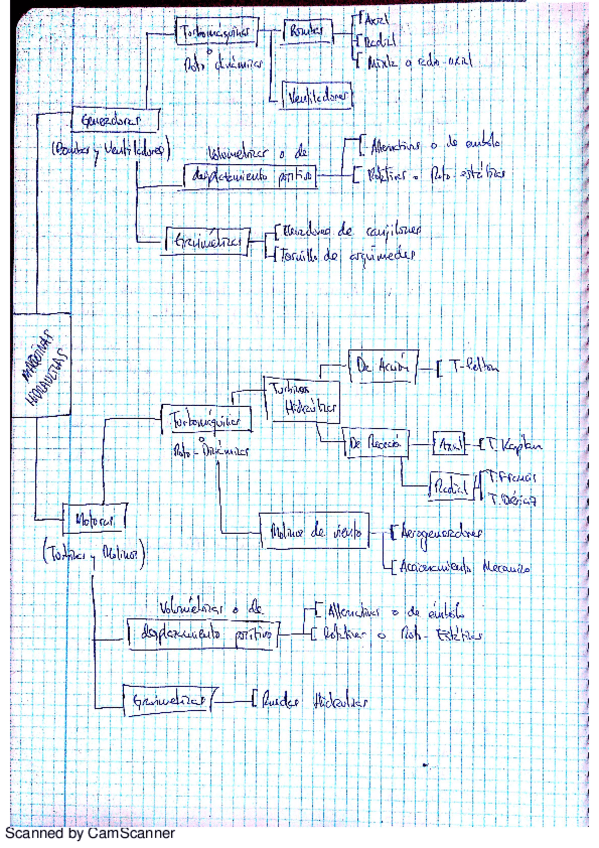 Turbomáquinas
o
Roto dinámicas
Bombas
Axial
Radial
Mixta o radio-axial
Ventiladores
Generadoras
(Bombas y Ventiladores)
Volumétricas o de
desplazamiento positivo
Alternativas o de embolo
Rotativas o Roto-estáticas
Gravimétricas
Elevadoras de cangilones
Tornillo de arquímedes
MÁQUINAS
HIDRAULICAS
Turbomáquinas
o
Roto-Dinámicas
Turbinas
Hidráulicas
De Acción
T-Pelton
De Reacción
Axial
T. Kaplan
Radial
T. Francis
T. Dériaz
Motoras
(Turbinas y Molinos)
Molinos de viento
Aerogeneradores
Accionamiento Mecanico
Volumétricas o de
desplazamiento positivo
Alternativas o de émbolo
Rotativas o Roto-Estáticas
Gravimétricas
Ruedas Hidraulicas
Scanned by CamScanner